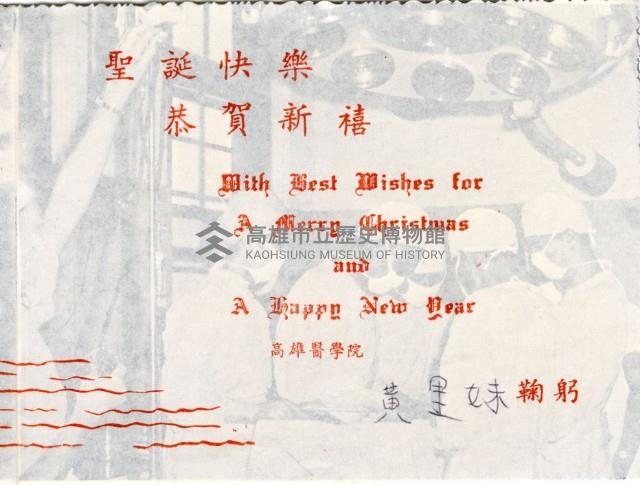 聖誕快樂
恭賀新禧
With Best Wishes for
A Merry Christmas
高雄市立歷史博物館
KAOHSIUNG MUSEUM OF HISTORY
and
A Happy New Year
高雄醫學院
黃里妹 鞠躬